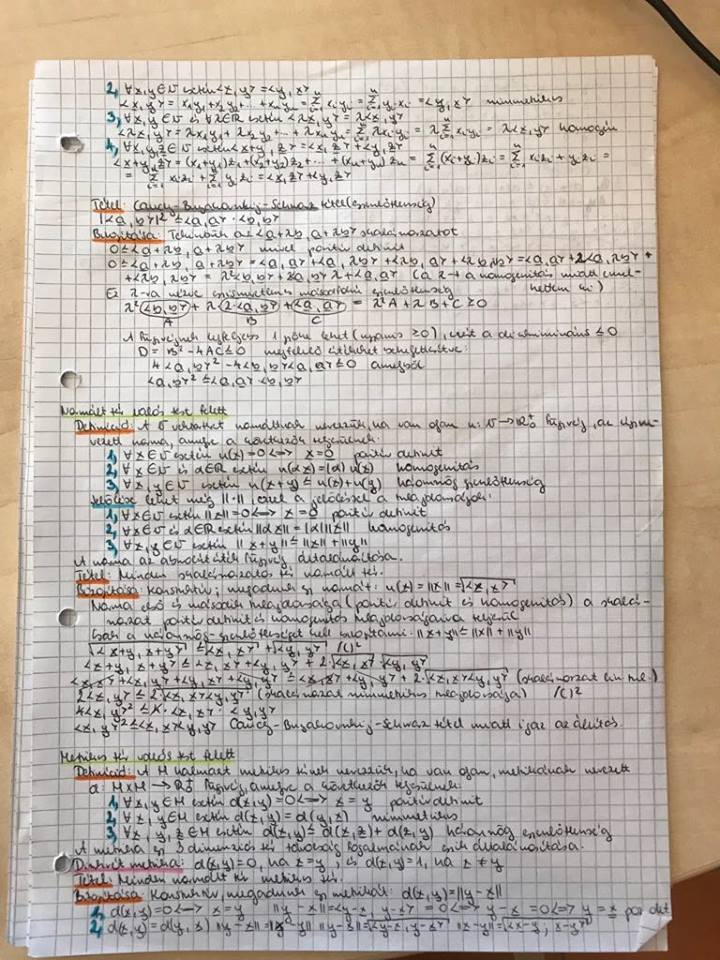 2, ∀x,y∈V esetén <x,y> = <y,x>
<x,y> = x₁y₁+x₂y₂+...+xₙyₙ = Σxᵢyᵢ = Σyᵢxᵢ = <y,x> szimmetrikus
3, ∀x,y∈V és ∀λ∈R esetén <λx,y> = λ<x,y>
<λx,y> = λx₁y₁+λx₂y₂+...+λxₙyₙ = Σλxᵢyᵢ = λΣxᵢyᵢ = λ<x,y> homogén
4, ∀x,y,z∈V esetén <x+y,z> = <x,z>+<y,z>
<x+y,z> = (x₁+y₁)z₁+(x₂+y₂)z₂+...+(xₙ+yₙ)zₙ = Σ(xᵢ+yᵢ)zᵢ = Σxᵢzᵢ+yᵢzᵢ =
= Σxᵢzᵢ+Σyᵢzᵢ = <x,z>+<y,z>
Tétel: -Schwarz tétel (egyenlőtlenség)
|<a,b>|² ≤ <a,a>·<b,b>
Bizonyítása: Tekintsük az <a+λb, a+λb> skalárszorzatot
0 ≤ <a+λb, a+λb> mivel pozitív definit
0 ≤ <a+λb, a+λb> = <a,a>+<a,λb>+<λb,a>+<λb,λb> = <a,a>+2<a,λb>+
+<λb,λb> = λ²<b,b>+2<a,b>λ+<a,a> (a λ-t a homogenitás miatt emel-
hettem ki)
Ez λ-ra nézve másodfokú egyenlőtlenség
λ²<b,b>+λ(2·<a,b>)+<a,a> = λ²A+λB+C ≥ 0
A B C
A függvénynek legfeljebb 1 gyöke lehet (ugyanis ≥0), ezért a diszkrimináns ≤0
D = B²-4AC ≤ 0 megfelelő értékeket behelyettesítve:
4<a,b>²-4<b,b><a,a> ≤ 0 amiből
<a,b>² ≤ <a,a>·<b,b>
Normált tér valós test felett
Definíció: A V vektorteret normáltnak nevezzük, ha van olyan n: V→R₀⁺ függvény, az úgyne-
vezett norma, amelyre a következők teljesülnek:
1, ∀x∈V esetén n(x)=0 <=> x=0 pozitív definit
2, ∀x∈V és α∈R esetén n(αx)=|α|n(x) homogenitás
3, ∀x,y∈V esetén n(x+y) ≤ n(x)+n(y) háromszög egyenlőtlenség
Jelölése lehet még ||·||, ezzel a jelöléssel a megoldások:
1, ∀x∈V esetén ||x||=0 <=> x=0 pozitív definit
2, ∀x∈V és α∈R esetén ||αx||=|α|||x|| homogenitás
3, ∀x,y∈V esetén ||x+y|| ≤ ||x||+||y||
A norma az abszolútérték függvény általánosítása.
Tétel: Minden skalárszorzatos tér normált tér.
Bizonyítása: Konstruktív; megadunk egy normát: n(x)=||x||=√<x,x>
Norma első és második megoldása (pozitív definit és homogenitás) a skalár-
szorzat pozitív definit és homogenitás megoldásaiva teljesül
Csak a háromszög-egyenlőtlenséget kell bizonyítani: ||x+y|| ≤ ||x||+||y||
√<x+y,x+y> ≤ √<x,x>+√<y,y> /()²
<x+y,x+y> ≤ <x,x>+<y,y>+2·√<x,x>·√<y,y>
<x,x>+<x,y>+<y,x>+<y,y> ≤ <x,x>+<y,y>+2·√<x,x><y,y> (skalárszorzat )
2<x,y> ≤ 2√<x,x><y,y> (skalárszorzat szimmetrikus megoldása) /()²
4<x,y>² ≤ 4·<x,x>·<y,y>
<x,y>² ≤ <x,x><y,y> -Schwarz tétel miatt igaz az állítás.
Metrikus tér valós test felett
Definíció: A M halmazt metrikus térnek nevezzük, ha van olyan, metrikának nevezett
d: M×M→R₀⁺ függvény, amelyre a következők teljesülnek:
1, ∀x,y∈M esetén d(x,y)=0 <=> x=y pozitív definit
2, ∀x,y∈M esetén d(x,y)=d(y,x) szimmetrikus
3, ∀x,y,z∈M esetén d(x,y) ≤ d(x,z)+d(z,y) háromszög egyenlőtlenség
A metrika a 3 dimenziós tér távolság fogalmának általánosítása.
Diszkrét metrika: d(x,y)=0, ha x=y, és d(x,y)=1, ha x≠y
Tétel: Minden normált tér metrikus tér.
Bizonyítása: Konstruktív, megadunk egy metrikát: d(x,y)=||y-x||
1, d(x,y)=0 <=> x=y ||y-x||=√<y-x,y-x> = 0 <=> y-x=0 <=> y=x poz def
2, d(x,y)=d(y,x) ||y-x||=||x-y|| ||y-x||=√<y-x,y-x> ||x-y||=√<x-y,x-y>